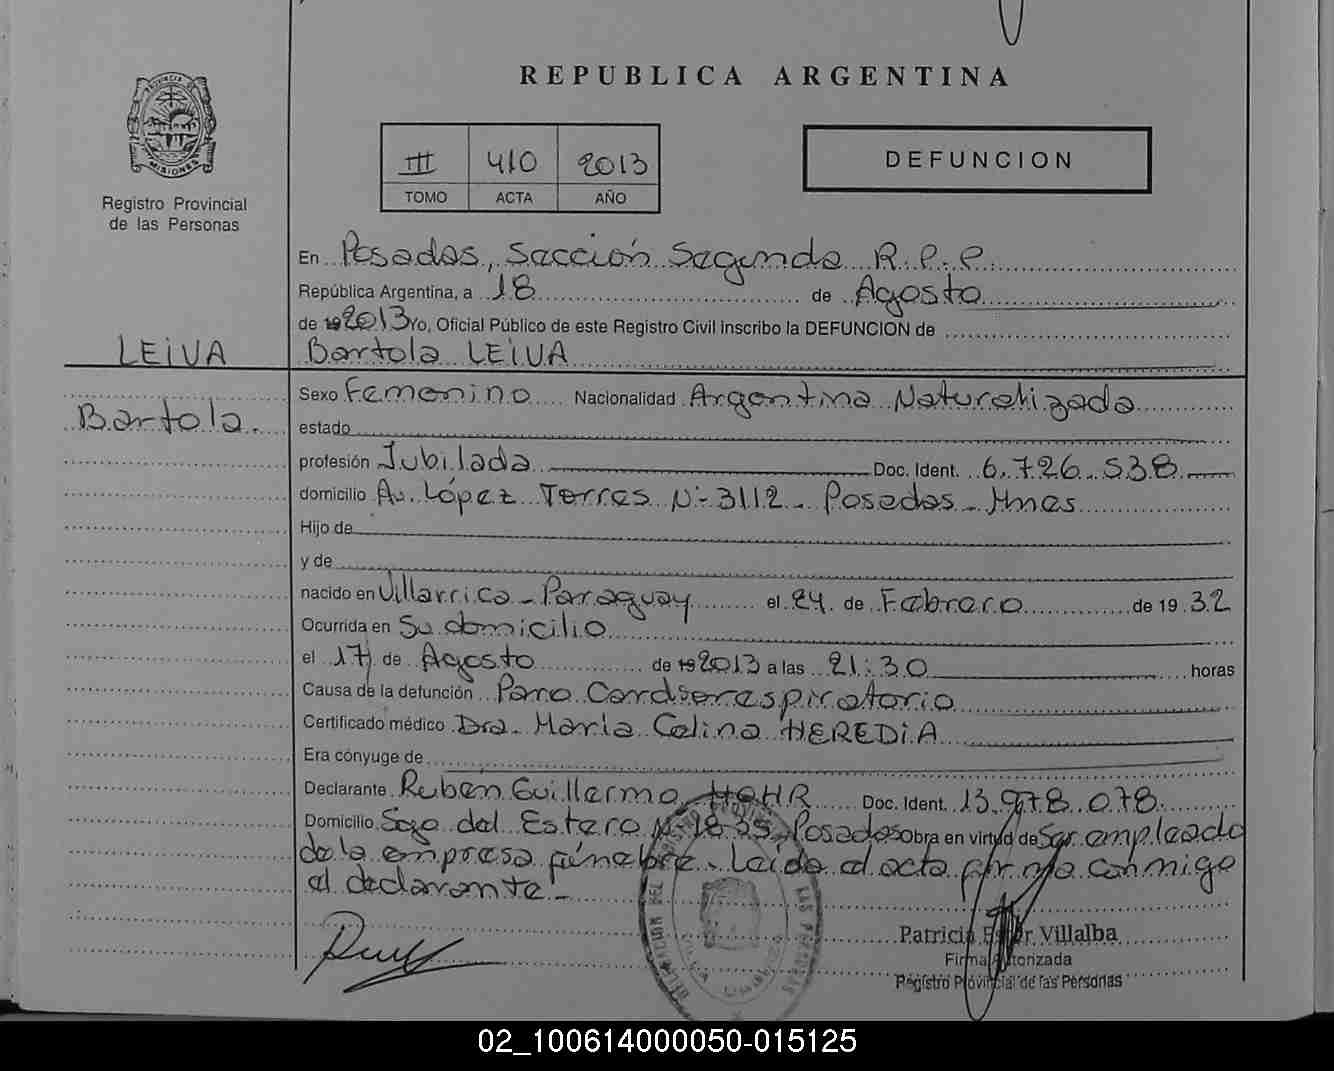 REPUBLICA ARGENTINA
PROVINCIA DE
MISIONES
Registro Provincial
de las Personas
III 410 2013
TOMO ACTA AÑO
DEFUNCION
En Posadas, Sección Segunda R.P.P.
República Argentina, a 18 de Agosto
de 19 2013 Yo, Oficial Público de este Registro Civil inscribo la DEFUNCION de
LEIVA
Bartola LEIVA
Bartola.
Sexo Femenino Nacionalidad Argentina Naturalizada
estado
profesión Jubilada Doc. Ident. 6.726.538
domicilio Av. López Torres Nº 3112 - Posadas - Mnes
Hijo de
y de
nacido en Villarrica - Paraguay el 24 de Febrero de 19 32
Ocurrida en Su domicilio
el 17 de Agosto de 19 2013 a las 21:30 horas
Causa de la defunción Paro Cardiorespiratorio
Certificado médico Dra. María Celina HEREDIA
Era cónyuge de
Declarante Rubén Guillermo HOHR Doc. Ident. 13.978.078
Domicilio Sgo del Estero Nº 1835, Posadas obra en virtud de Ser empleado
de la empresa fúnebre. Leída el acta firma conmigo
el declarante.-
Patricia Ester Villalba
Firma Autorizada
Registro Provincial de las Personas
02_100614000050-015125